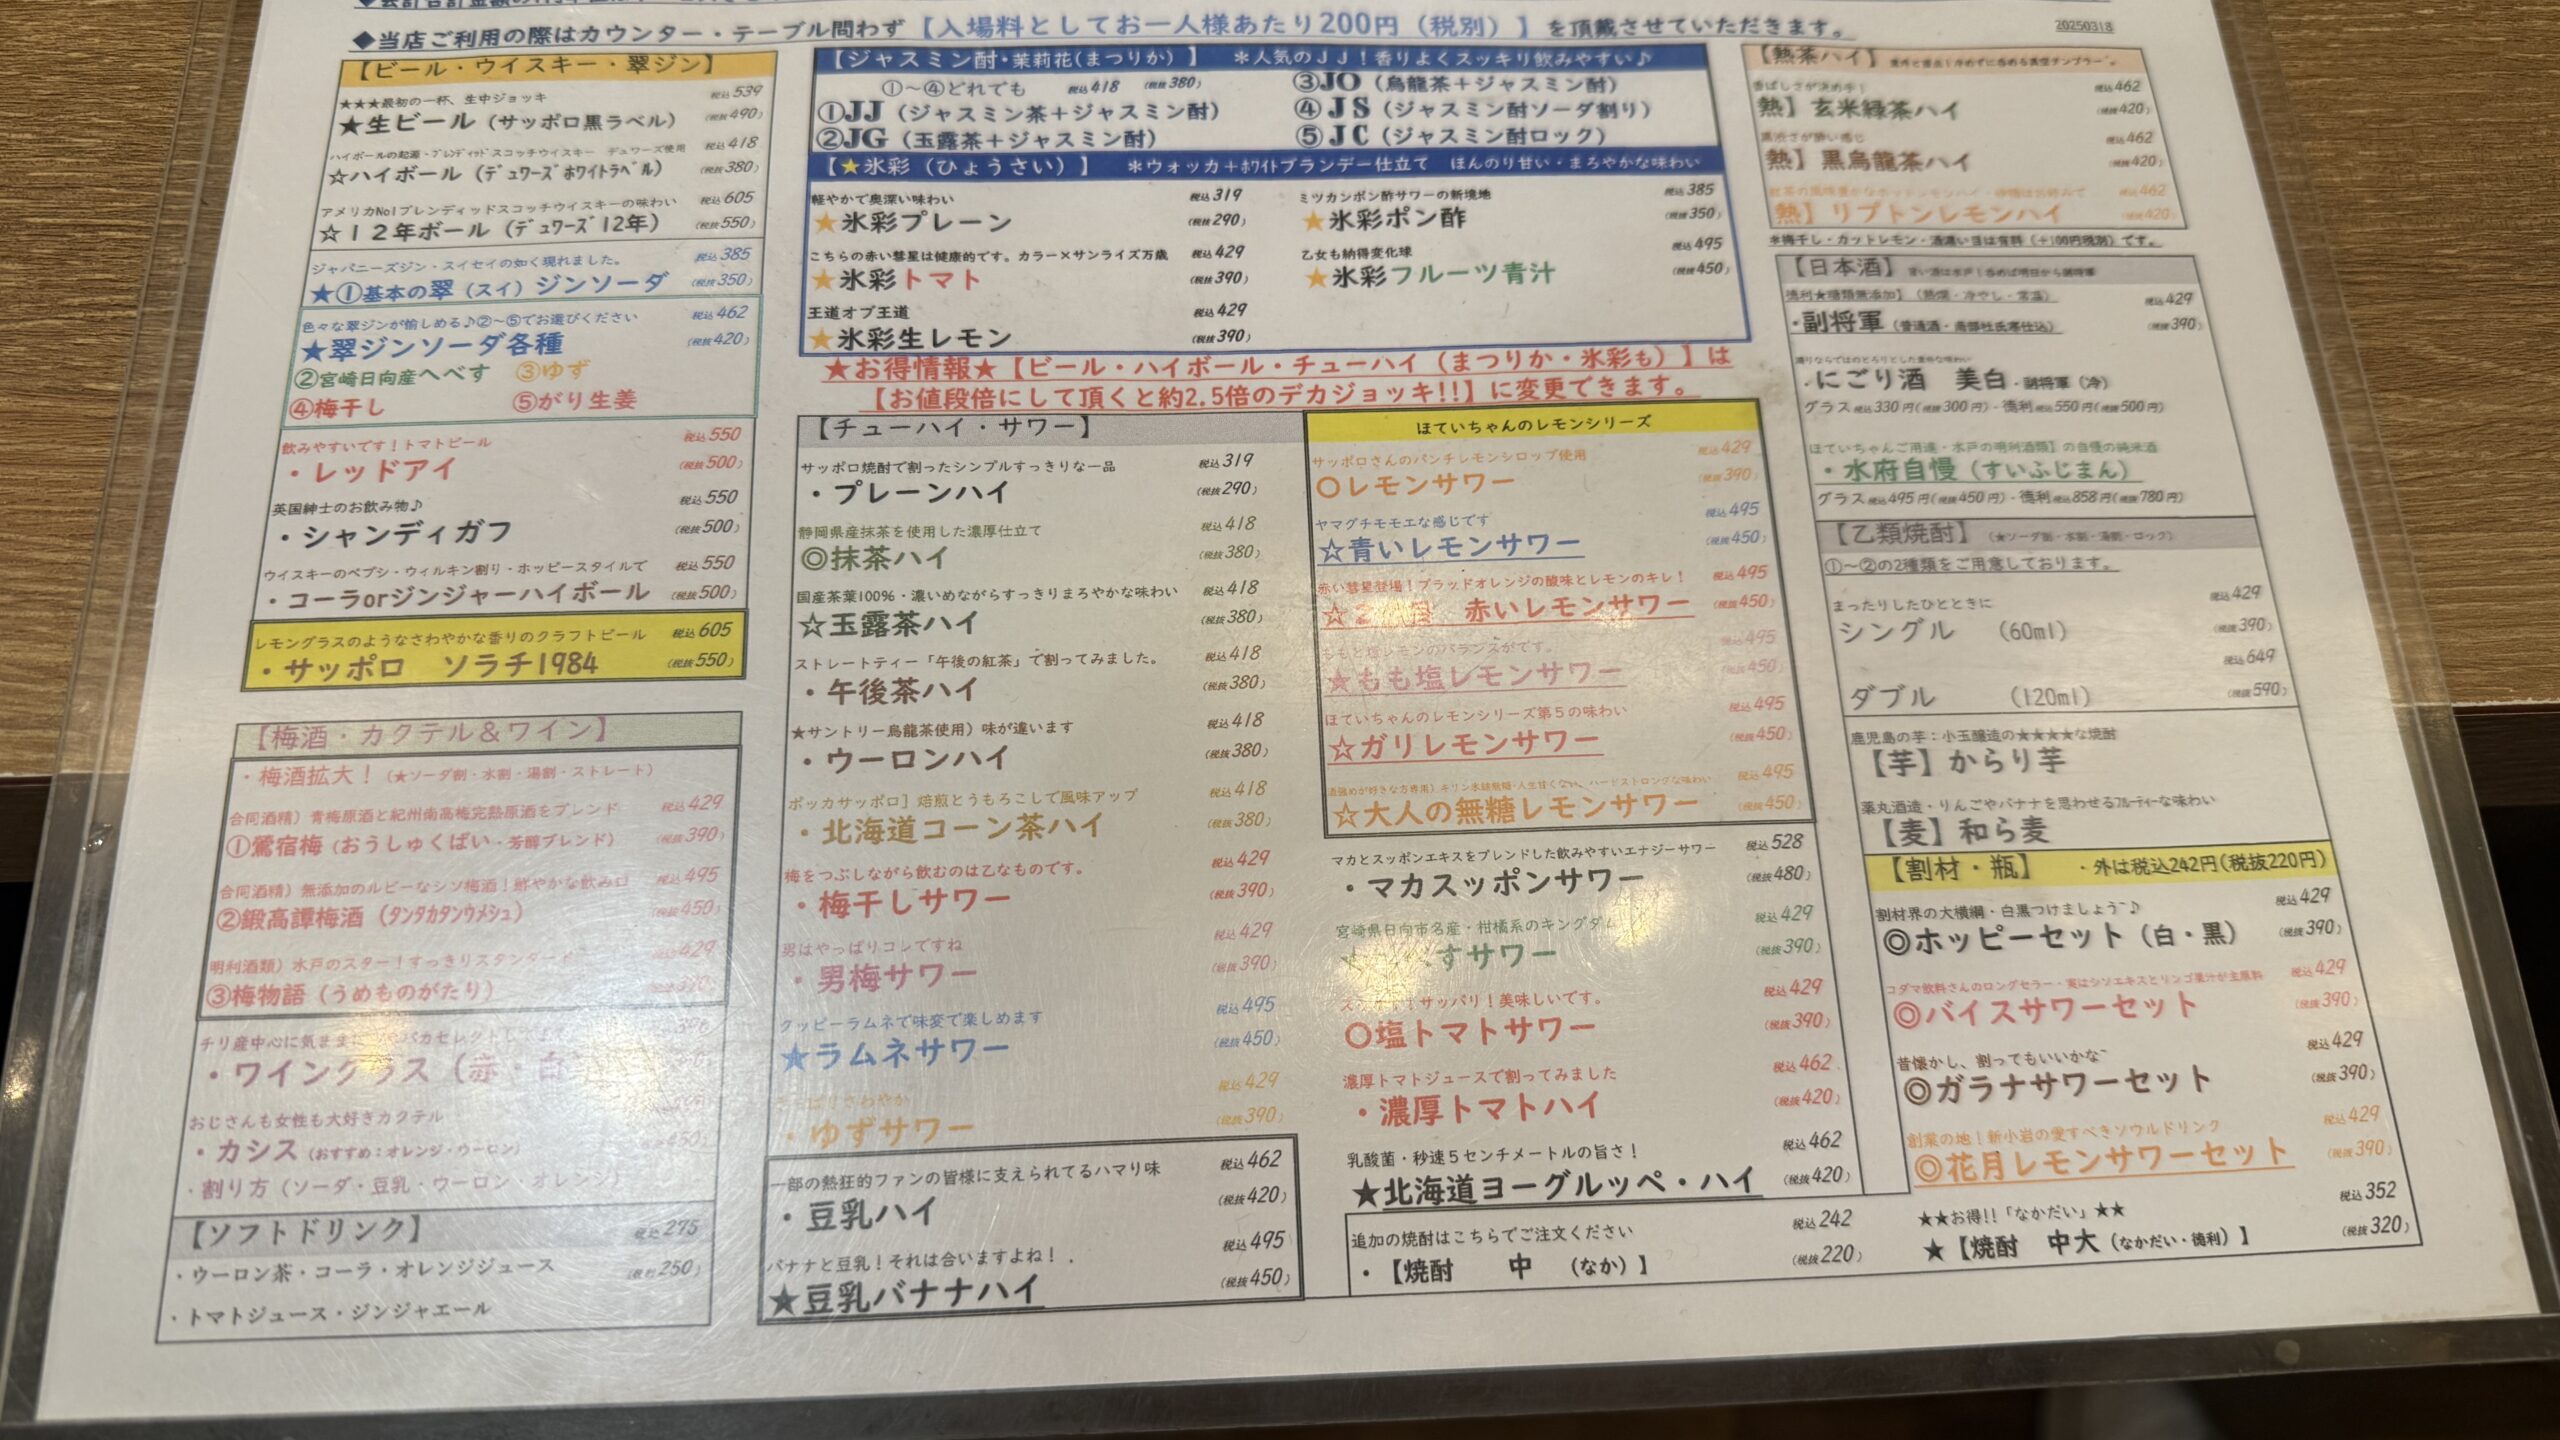 ◆当店ご利用の際はカウンター・テーブル問わず【入場料としてお一人様あたり200円（税別）】を頂戴させていただきます。
20250318
【ビール・ウイスキー・翠ジン】
★★★最初の一杯、生中ジョッキ 税込539
★生ビール（サッポロ黒ラベル） （税抜490）
ハイボールの起源・ブレンディッドスコッチウイスキー デュワーズ使用 税込418
☆ハイボール（デュワーズホワイトラベル） （税抜380）
アメリカNo1ブレンディッドスコッチウイスキーの味わい 税込605
☆１２年ボール（デュワーズ12年） （税抜550）
ジャパニーズジン・スイセイの如く現れました。 税込385
★①基本の翠（スイ）ジンソーダ （税抜350）
色々な翠ジンが愉しめる♪②～⑤でお選びください 税込462
★翠ジンソーダ各種 （税抜420）
②宮崎日向産へべす ③ゆず
④梅干し ⑤がり生姜
飲みやすいです！トマトビール 税込550
・レッドアイ （税抜500）
英国紳士のお飲み物♪ 税込550
・シャンディガフ （税抜500）
ウイスキーのペプシ・ウィルキン割り・ホッピースタイルで 税込550
・コーラorジンジャーハイボール （税抜500）
レモングラスのようなさわやかな香りのクラフトビール 税込605
・サッポロ ソラチ1984 （税抜550）
【梅酒・カクテル＆ワイン】
・梅酒拡大！（★ソーダ割・水割・湯割・ストレート）
合同酒精）青梅原酒と紀州南高梅完熟原酒をブレンド 税込429
①鶯宿梅（おうしゅくばい・芳醇ブレンド） （税抜390）
合同酒精）無添加のルビーなシソ梅酒！鮮やかな飲み口 税込495
②鍛高譚梅酒（タンタカタンウメシュ） （税抜450）
明利酒類）水戸のスター！すっきりスタンダード 税込429
③梅物語（うめものがたり）
チリ産中心に気まま
・ワイングラス（赤・白）
おじさんも女性も大好きカクテル
・カシス（おすすめ：オレンジ・ウーロン） （税抜450）
・割り方（ソーダ・豆乳・ウーロン・オレンジ）
【ソフトドリンク】 税込275
・ウーロン茶・コーラ・オレンジジュース （税抜250）
・トマトジュース・ジンジャエール
【ジャスミン酎・茉莉花（まつりか）】 ＊人気のＪＪ！香りよくスッキリ飲みやすい♪
①～④どれでも 税込418 （税抜380）
①JJ（ジャスミン茶＋ジャスミン酎）
②JG（玉露茶＋ジャスミン酎）
③JO（烏龍茶＋ジャスミン酎）
④JS（ジャスミン酎ソーダ割り）
⑤JC（ジャスミン酎ロック）
【★氷彩（ひょうさい）】 ＊ウォッカ＋ホワイトブランデー仕立て ほんのり甘い・まろやかな味わい
軽やかで奥深い味わい 税込319
★氷彩プレーン （税抜290）
こちらの赤い彗星は健康的です。カラー×サンライズ万歳 税込429
★氷彩トマト （税抜390）
王道オブ王道 税込429
★氷彩生レモン （税抜390）
ミツカンポン酢サワーの新境地 税込385
★氷彩ポン酢 （税抜350）
乙女も納得変化球 税込495
★氷彩フルーツ青汁 （税抜450）
★お得情報★【ビール・ハイボール・チューハイ（まつりか・氷彩も）】は
【お値段倍にして頂くと約2.5倍のデカジョッキ!!】に変更できます。
【チューハイ・サワー】
サッポロ焼酎で割ったシンプルすっきりな一品 税込319
・プレーンハイ （税抜290）
静岡県産抹茶を使用した濃厚仕立て 税込418
◎抹茶ハイ （税抜380）
国産茶葉100％・濃いめながらすっきりまろやかな味わい 税込418
☆玉露茶ハイ （税抜380）
ストレートティー「午後の紅茶」で割ってみました。 税込418
・午後茶ハイ （税抜380）
★サントリー烏龍茶使用）味が違います 税込418
・ウーロンハイ （税抜380）
ポッカサッポロ］焙煎とうもろこしで風味アップ 税込418
・北海道コーン茶ハイ （税抜380）
梅をつぶしながら飲むのは乙なものです。 税込429
・梅干しサワー （税抜390）
男はやっぱりコレですね 税込429
・男梅サワー （税抜390）
クッピーラムネで味変で楽しめます 税込495
★ラムネサワー （税抜450）
さわやか 税込429
・ゆずサワー （税抜390）
一部の熱狂的ファンの皆様に支えられてるハマり味 税込462
・豆乳ハイ （税抜420）
バナナと豆乳！それは合いますよね！ 税込495
★豆乳バナナハイ （税抜450）
ほていちゃんのレモンシリーズ
サッポロさんのパンチレモンシロップ使用 税込429
○レモンサワー （税抜390）
ヤマグチモモエな感じです 税込495
☆青いレモンサワー （税抜450）
赤い彗星登場！ブラッドオレンジの酸味とレモンのキレ！ 税込495
赤いレモンサワー （税抜450）
ももと塩レモンのバランスがです。 税込495
★もも塩レモンサワー （税抜450）
ほていちゃんのレモンシリーズ第５の味わい 税込495
☆ガリレモンサワー （税抜450）
税込495
☆大人の無糖レモンサワー （税抜450）
マカとスッポンエキスをブレンドした飲みやすいエナジーサワー 税込528
・マカスッポンサワー （税抜480）
宮崎県日向市名産・柑橘系のキングダム 税込429
すサワー （税抜390）
サッパリ！美味しいです。 税込429
○塩トマトサワー （税抜390）
濃厚トマトジュースで割ってみました 税込462
・濃厚トマトハイ （税抜420）
乳酸菌・秒速５センチメートルの旨さ！ 税込462
★北海道ヨーグルッペ・ハイ （税抜420）
追加の焼酎はこちらでご注文ください 税込242
・【焼酎 中 （なか）】 （税抜220）
【熱茶ハイ】
香ばしさが決め手！ 税込462
熱】玄米緑茶ハイ （税抜420）
税込462
熱】黒烏龍茶ハイ （税抜420）
税込462
熱】リプトンレモンハイ （税抜420）
＊梅干し・カットレモン・酒濃い目は有料（＋100円税別）です。
【日本酒】
徳利★糖類無添加】（熱燗・冷やし・常温） 税込429
・副将軍（普通酒・南部杜氏寒仕込） （税抜390）
・にごり酒 美白・副将軍（冷）
グラス税込330円（税抜300円）・徳利税込550円（税抜500円）
ほていちゃんご用達・水戸の明利酒類】の自慢の純米酒
・水府自慢（すいふじまん）
グラス税込495円（税抜450円）・徳利税込858円（税抜780円）
【乙類焼酎】（★ソーダ割・水割・湯割・ロック）
①～②の2種類をご用意しております。
まったりしたひとときに 税込429
シングル （60ml） （税抜390）
税込649
ダブル （120ml） （税抜590）
鹿児島の芋：小玉醸造の★★★★な焼酎
【芋】からり芋
薬丸酒造・りんごやバナナを思わせるフルーティーな味わい
【麦】和ら麦
【割材・瓶】 ・外は税込242円（税抜220円）
割材界の大横綱・白黒つけましょう~♪ 税込429
◎ホッピーセット（白・黒） （税抜390）
コダマ飲料さんのロングセラー・実はシソエキスとリンゴ果汁が主原料 税込429
◎バイスサワーセット （税抜390）
昔懐かし、割ってもいいかな~ 税込429
◎ガラナサワーセット （税抜390）
創業の地！新小岩の愛すべきソウルドリンク 税込429
◎花月レモンサワーセット （税抜390）
★★お得!!「なかだい」★★ 税込352
★【焼酎 中大（なかだい・徳利）】 （税抜320）